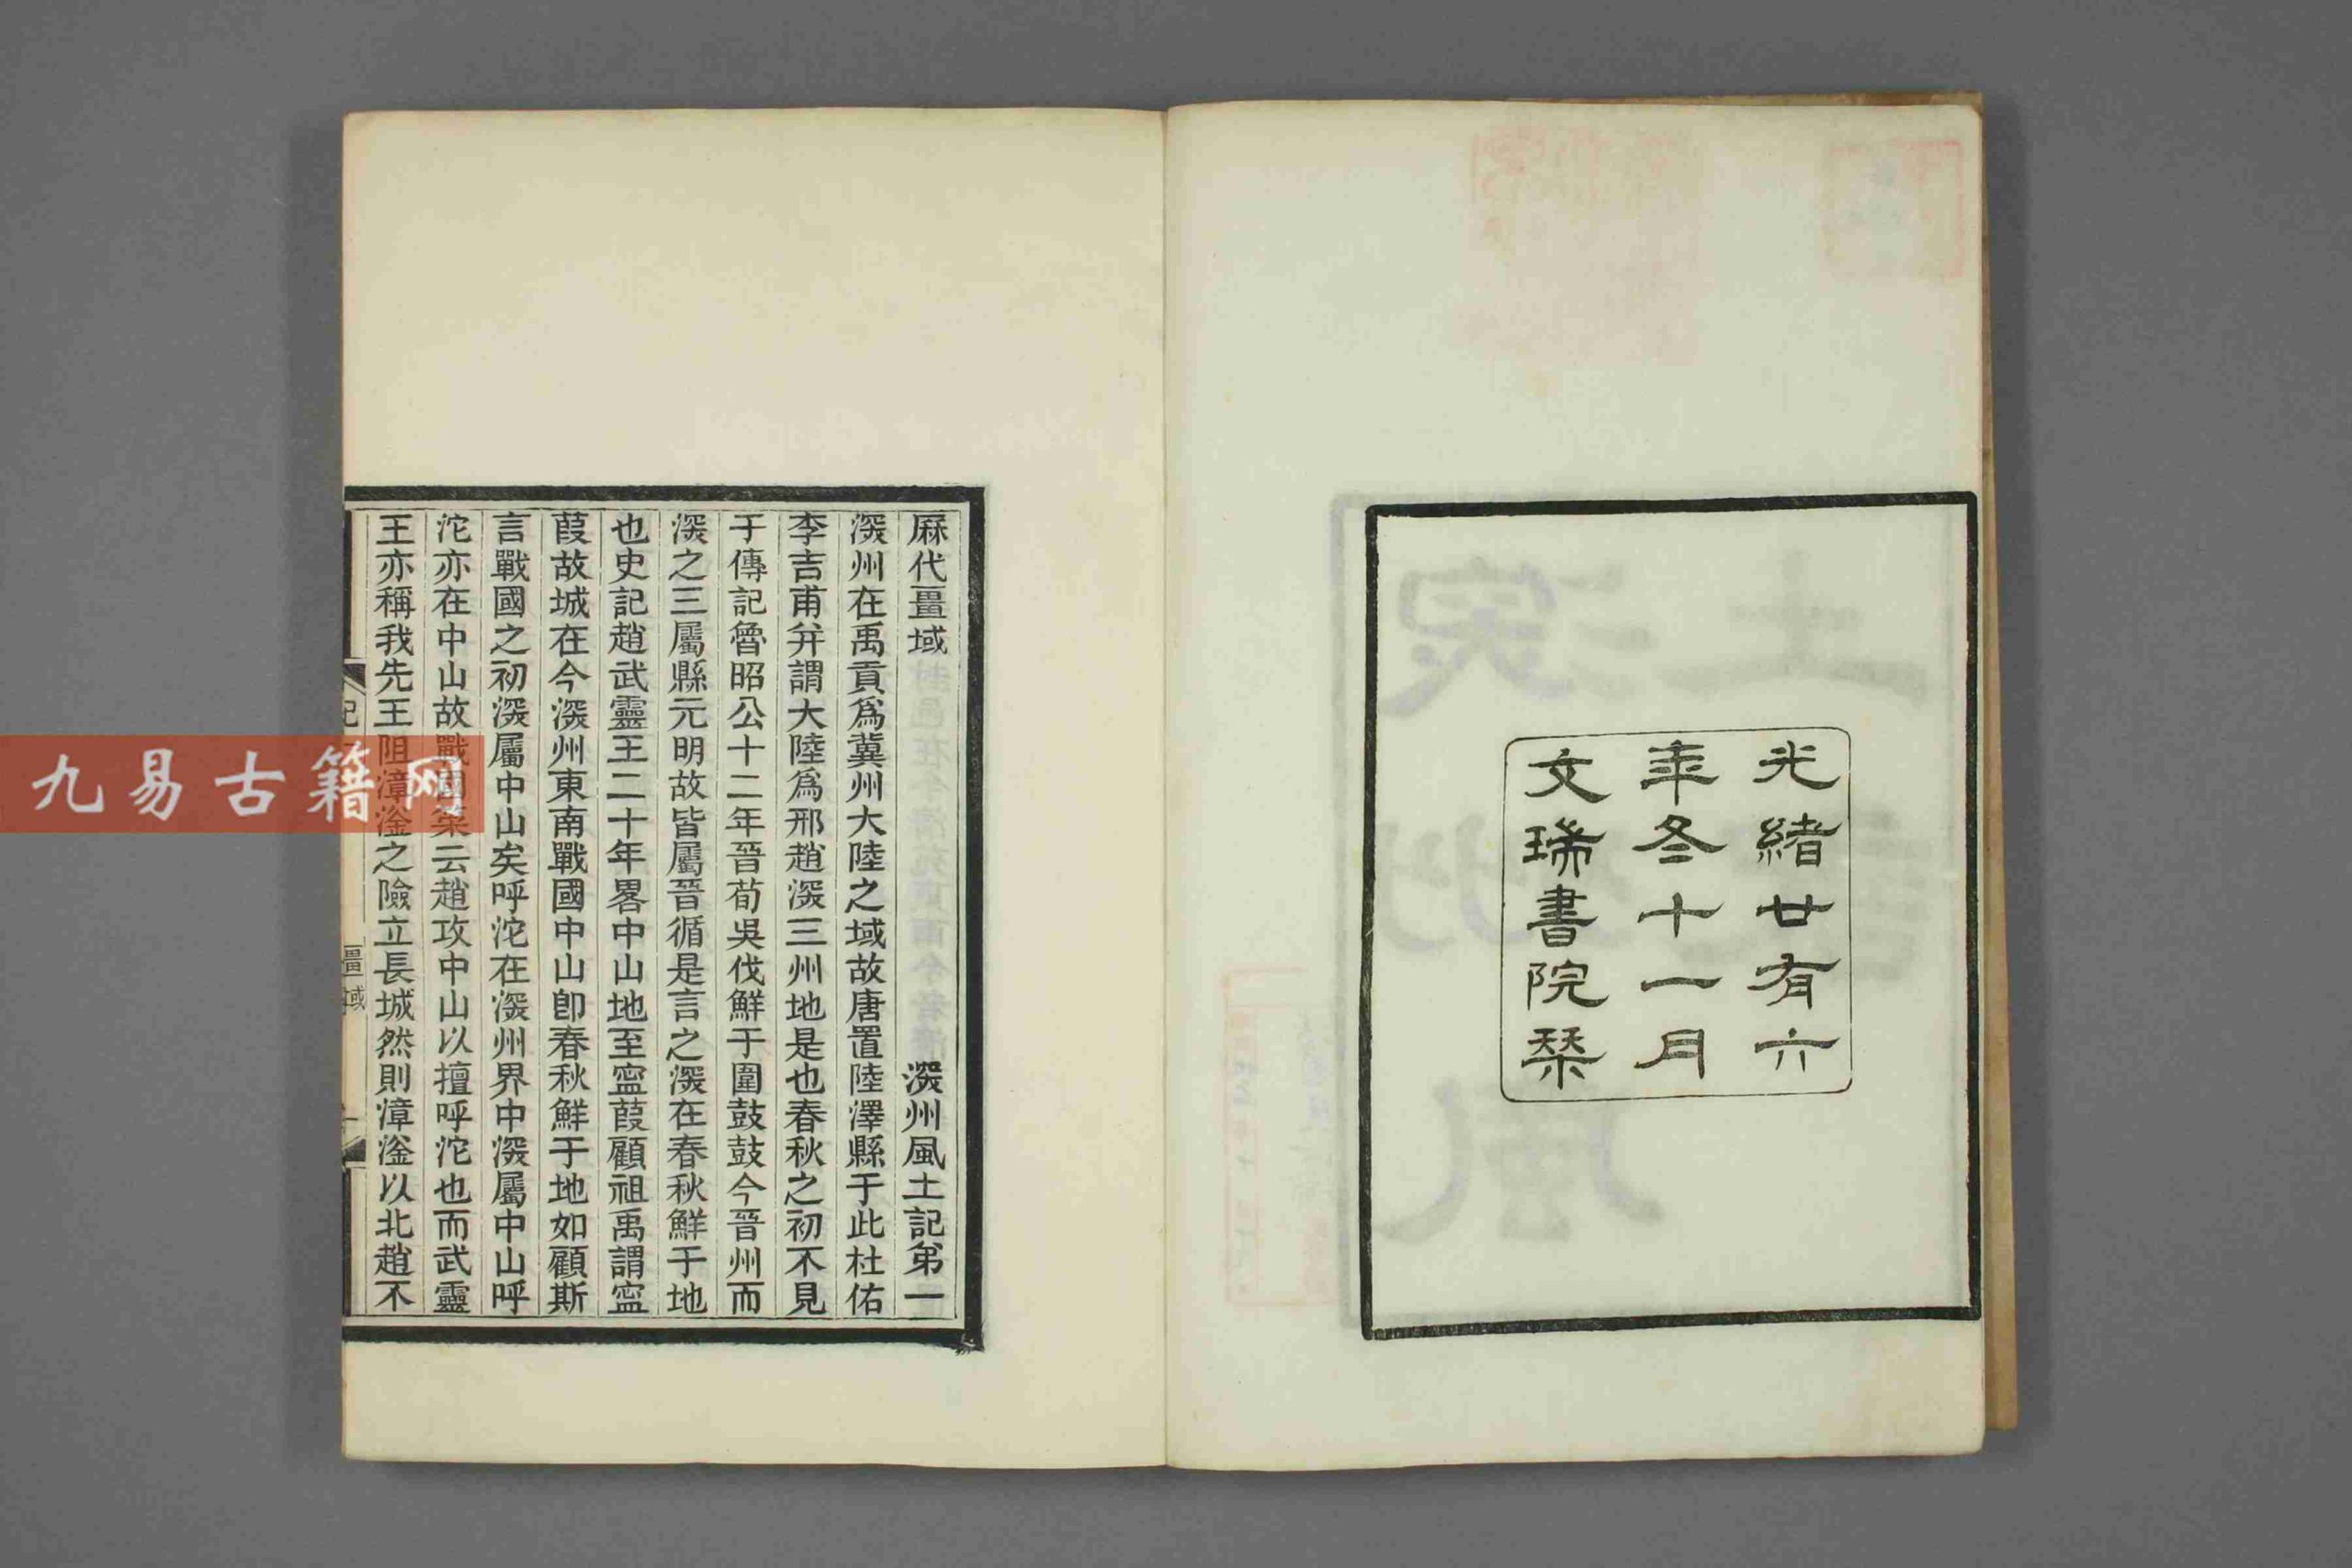 光緒廿有六
年冬十一月
文瑞書院栞
厤代畺域 深州風土記第一
深州在禹貢爲冀州大陸之域故唐置陸澤縣于此杜佑
李吉甫并謂大陸爲邢趙深三州地是也春秋之初不見
于傳記魯昭公十二年晉荀吳伐鮮于圍鼓鼓今晉州而
深之三屬縣元明故皆屬晉循是言之深在春秋鮮于地
也史記趙武靈王二十年畧中山地至寍葭顧祖禹謂寍
葭故城在今深州東南戰國中山卽春秋鮮于地如顧斯
言戰國之初深屬中山矣呼沱在深州界中深屬中山呼
沱亦在中山故戰國策云趙攻中山以擅呼沱也而武靈
王亦稱我先王阻漳滏之險立長城然則漳滏以北趙不
畺域
九易古籍网